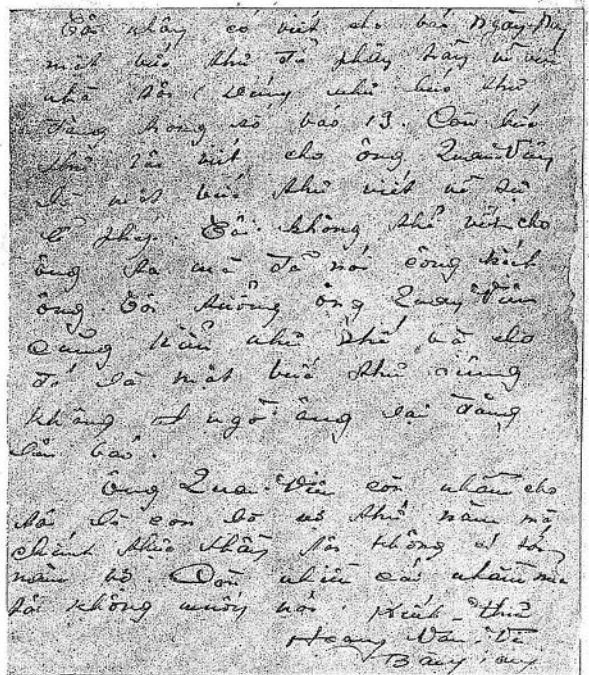 Tôi nhây có viết cho báo Ngày-Nay
một bức thư để phân trần về việc
nhà tôi (đúng như bức thư
đăng trong số báo 13. Còn bức
thư tôi viết cho ông Quan Viên
là một bức thư viết về sự
lễ phép. Tôi không thể viết cho
ông ta mà để nói công kích
ông. Tôi tưởng ông Quan Viên
cũng hiểu như thế và cho
đó là một bức thư riêng
không ngờ ông lại đăng
lên báo.
Ông Quan-Viên còn nhầm cho
tôi là con bà vợ thứ năm mà
chính thực thầy tôi không có tới
năm bà. Còn nhiều cái nhầm mà
tôi không muốn nói. Kính-thư
Hoàng Văn